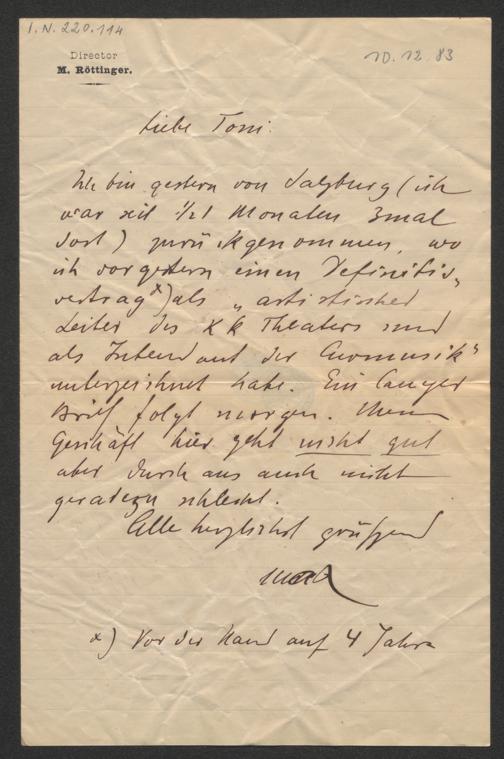 I.N. 220.114
Director
M. Röttinger.
10.12.83
Liebe Toni.
Ich bin gestern von Salzburg (ich
war seit 1/2 Monaten 3mal
dort) zurückgenommen, wo
ich vorgestern einen Definitiv-
vertrag x) als „artistischer
Leiter des KK Theaters und
als Intendant der Curmusik"
unterzeichnet habe. Ein langer
Brief folgt morgen. Mein
Geschäft hier geht nicht gut
aber durchaus auch nicht
geradezu schlecht.
Alle herzlichst grüßend
x) Vor der Hand auf 4 Jahre